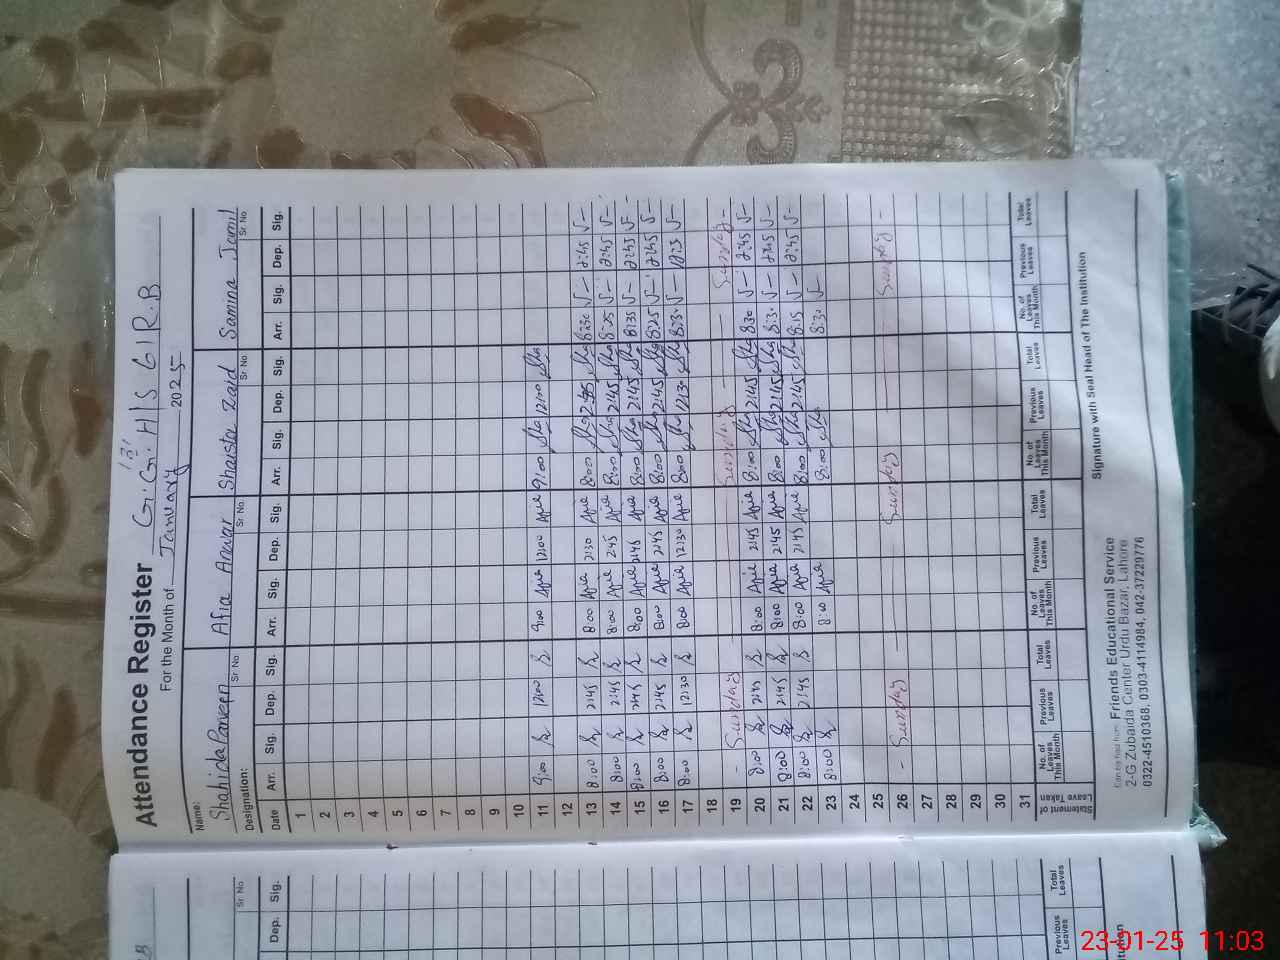 Attendance Register G.G.H/S 61 R.B.
For the Month of January 2025
Name: Shahida Parveen Afia Anwar Shaista Zaid Samina Jamil
Designation: Sr No Sr No. Sr No Sr No
Date Arr. Sig. Dep. Sig. Arr. Sig. Dep. Sig. Arr. Sig. Dep. Sig. Arr. Sig. Dep. Sig.
1
2
3
4
5
6
7
8
9
10
11 9:00 12:00 9:00 Afia 12:00 Afia 9:00 Sha 12:00 Sha
12
13 8:00 2:45 8:00 Afia 2:30 Afia 8:00 Sha Sha 8:30 2:45
14 8:00 2:45 8:00 Afia 2:45 Afia 8:00 Sha 2:45 Sha 8:25 2:45
15 8:00 2:45 8:00 Afia 2:45 Afia 8:00 Sha 2:45 Sha 8:35 2:45
16 8:00 2:45 8:00 Afia 2:45 Afia 8:00 Sha 2:45 Sha 8:25 2:45
17 8:00 12:30 8:00 Afia 12:30 Afia 8:00 Sha 12:30 Sha 8:30 12:3
18
19 Sunday Sunday Sunday
20 8:00 2:45 8:00 Afia 2:45 Afia 8:00 Sha 2:45 Sha 8:30 2:45
21 8:00 2:45 8:00 Afia 2:45 Afia 8:00 Sha 2:45 Sha 8:30 2:45
22 8:00 2:45 8:00 Afia 2:45 Afia 8:00 Sha 2:45 Sha 8:15 2:45
23 8:00 8:00 Afia 8:00 Sha 8:30
24
25
26 Sunday Sunday Sunday
27
28
29
30
31
Statement of Leave Taken No. of Leaves This Month Previous Leaves Total Leaves No. of Leaves This Month Previous Leaves Total Leaves No. of Leaves This Month Previous Leaves Total Leaves No. of Leaves This Month Previous Leaves Total Leaves
Signature with Seal Head of The Institution
Can be had from: Friends Educational Service
2-G Zubaida Center Urdu Bazar, Lahore
0322-4510368, 0303-4114984, 042-37229776
Sr No
Dep. Sig.
Previous Leaves Total Leaves
itution
23-01-25 11:03